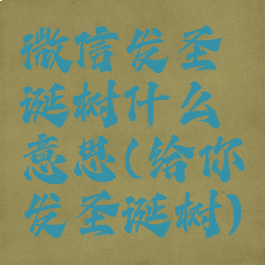 微信发圣
诞树什么
意思(给你
发圣诞树)